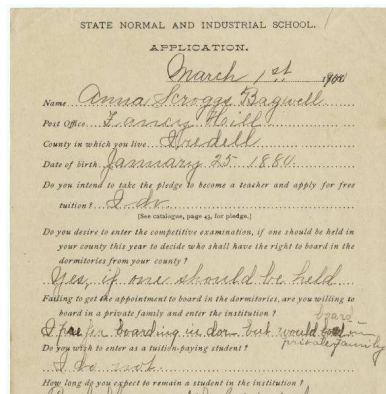 STATE NORMAL AND INDUSTRIAL SCHOOL.
APPLICATION.
March 1st 1900
Name Anna Scroggs Bagwell
Post Office Fancy Hill
County in which you live Iredell
Date of birth January 25 1880
Do you intend to take the pledge to become a teacher and apply for free
tuition? I do
[See catalogue, page 43, for pledge.]
Do you desire to enter the competitive examination, if one should be held in
your county this year to decide who shall have the right to board in the
dormitories from your county?
Yes, if one should be held
Failing to get the appointment to board in the dormitories, are you willing to
board in a private family and enter the institution?
I prefer boarding in dor. but would board in
private family
Do you wish to enter as a tuition-paying student?
I do not.
How long do you expect to remain a student in the institution?